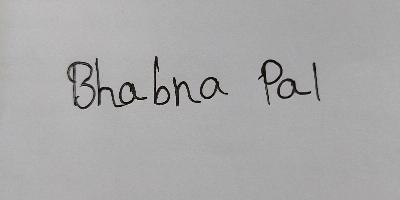 Bhabna Pal